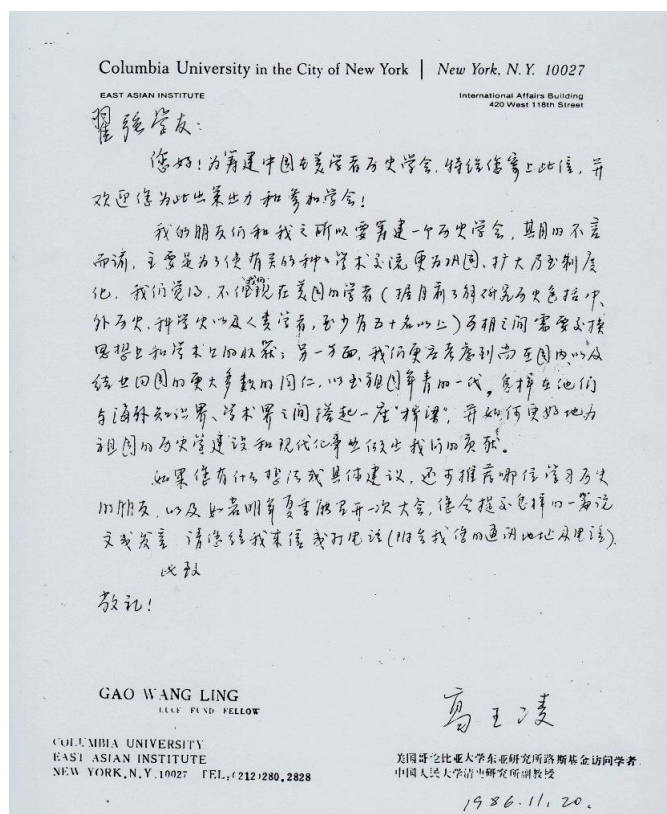 Columbia University in the City of New York | New York, N. Y. 10027
EAST ASIAN INSTITUTE
International Affairs Building
420 West 118th Street
翟强学友：
您好！为筹建中国在美学者历史学会，特给您寄上此信，并
欢迎您为此出来出力和参加学会！
我的朋友们和我之所以要筹建一个历史学会，其目的不言
而喻，主要是为了使有关的种种学术交流更为巩固、扩大乃至制度
化。我们觉得，不仅我们现在美国的学者（据目前了解研究历史包括中、
外历史、科学史以及人类学者，至少有五十名以上）互相之间需要交换
思想上和学术上的收获；另一方面，我们更应考虑到尚在国内以及
结业回国的更大多数的同仁，以至祖国年青的一代，怎样在他们
与海外知识界、学术界之间搭起一座“桥梁”，并如何更好地为
祖国的历史学建设和现代化事业做出我们的贡献。
如果您有什么想法或具体建议，还可推荐哪位学习历史
的朋友，以及如若明年夏季能召开一次大会，您会提交怎样的一篇论
文或发言，请您给我来信或打电话（附告我您的通讯地址及电话）。
此致
敬礼！
GAO WANG LING
LUCE FUND FELLOW
高王凌
COLUMBIA UNIVERSITY
EAST ASIAN INSTITUTE
NEW YORK, N.Y. 10027 TEL, (212) 280, 2828
美国哥伦比亚大学东亚研究所路斯基金访问学者
中国人民大学清史研究所副教授
1986.11.20.